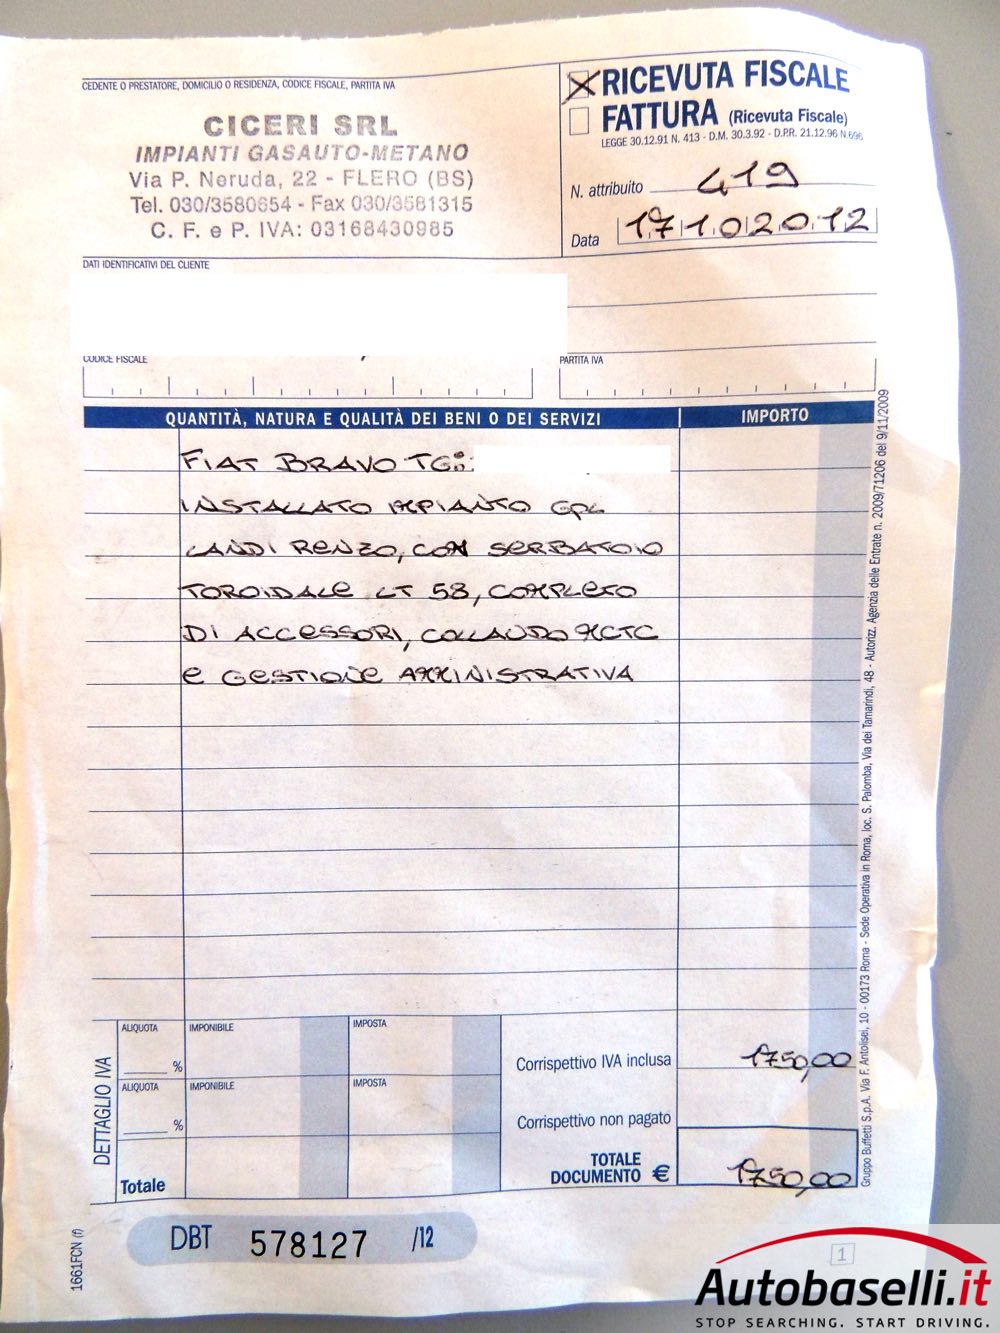 CEDENTE O PRESTATORE, DOMICILIO O RESIDENZA, CODICE FISCALE, PARTITA IVA
CICERI SRL
IMPIANTI GASAUTO-METANO
Via P. Neruda, 22 - FLERO (BS)
Tel. 030/3580654 - Fax 030/3581315
C. F. e P. IVA: 03168430985
RICEVUTA FISCALE
FATTURA (Ricevuta Fiscale)
LEGGE 30.12.91 N. 413 - D.M. 30.3.92 - D.P.R. 21.12.96 N. 696
N. attribuito 419
Data 17102012
DATI IDENTIFICATIVI DEL CLIENTE
CODICE FISCALE
PARTITA IVA
QUANTITÀ, NATURA E QUALITÀ DEI BENI O DEI SERVIZI
IMPORTO
FIAT BRAVO TG:
INSTALLATO IMPIANTO GPL
LANDI RENZO, CON SERBATOIO
TOROIDALE LT 58, COMPLETO
DI ACCESSORI, COLLAUDO MCTC
E GESTIONE AMMINISTRATIVA
DETTAGLIO IVA
ALIQUOTA IMPONIBILE IMPOSTA
%
Corrispettivo IVA inclusa 1750,00
ALIQUOTA IMPONIBILE IMPOSTA
%
Corrispettivo non pagato
Totale
TOTALE
DOCUMENTO € 1750,00
DBT 578127 /12
1661FCN (f)
Gruppo Buffetti S.p.A. Via F. Antolisei, 10 - 00173 Roma - Sede Operativa in Roma, loc. S. Palomba, Via dei Tamarindi, 48 - Autorizz. Agenzia delle Entrate n. 2009/71206 del 9/11/2009
1
Autobaselli.it
STOP SEARCHING. START DRIVING.